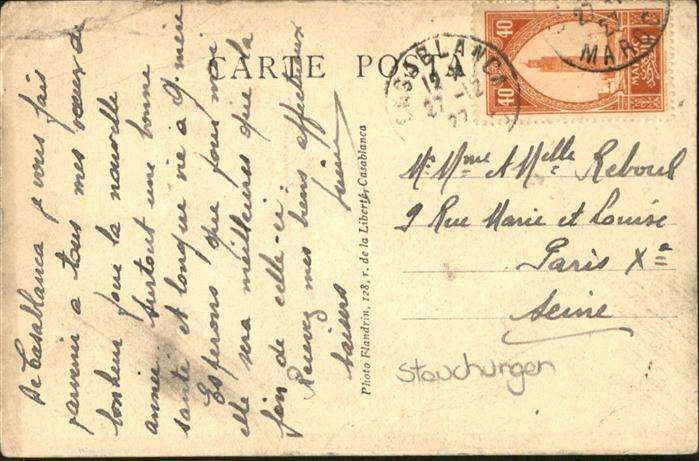 CARTE POSTALE
De Casablanca je vous fais
parvenir à tous mes vœux de
bonheur pour la nouvelle
année surtout une bonne
santé et longue vie à G. mère
Espérons que pour moi
elle sera meilleures que la
fin de celle-ci.
Recevez mes biens affectueux
baisers
Photo Flandrin, 128, r. de la Liberté, Casablanca
CASABLANCA
12
27-12
27
40
40
MAROC
MAROC
Mr Mme & Melle Reboul
9 Rue Marie et Louise
Paris Xe
Seine
Stauchungen